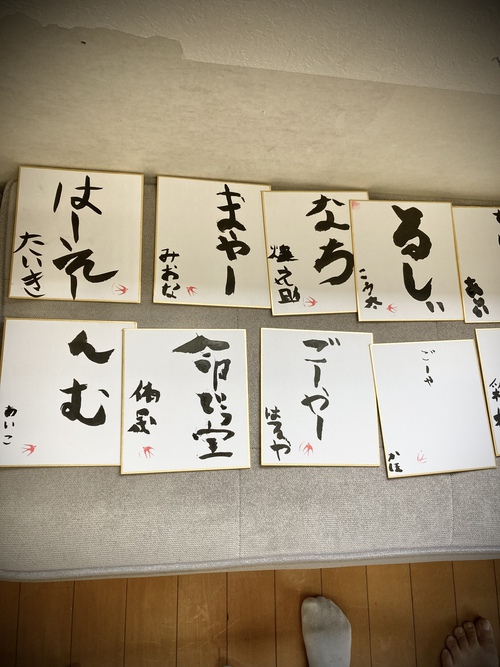 はーそん
たいき
まやー
みおな
なち
煌之助
るしぃ
こう太
あい
んむ
あいこ
命どぅ宝
ごーやー
はるや
ごーや
かほ